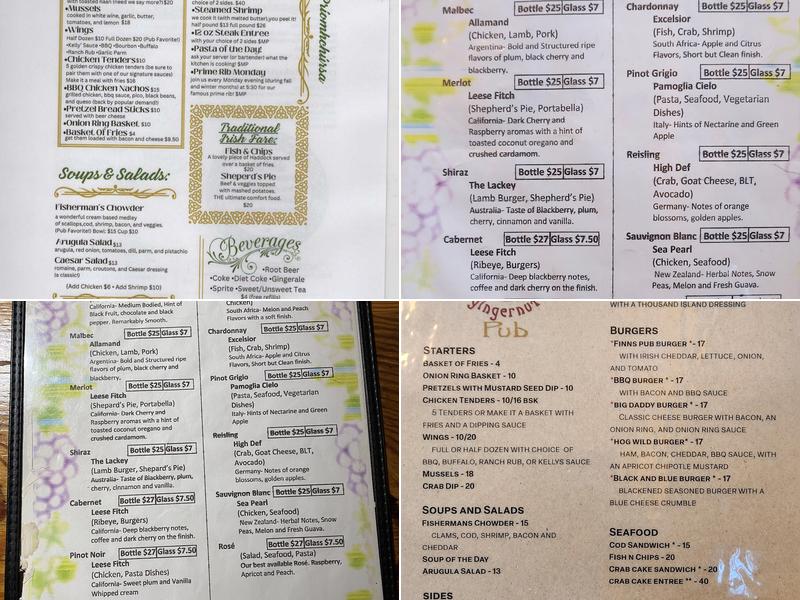 with toasted naan (need we say more?)$20
•Mussels
cooked in white wine, garlic, butter,
tomatoes, and lemon $18
•Wings
Half Dozen $10 Full Dozen $20 (Pub Favorite!)
•Kelly' Sauce •BBQ •Bourbon •Buffalo
•Ranch Rub •Garlic Parm
•Chicken Tenders$10
5 golden crispy chicken tenders (be sure to
pair them with one of our signature sauces)
Make it a meal with fries $16
•BBQ Chicken Nachos $15
grilled chicken, bbq sauce, pico, black beans,
and queso (back by popular demand!)
•Pretzel Bread Sticks $10
served with beer cheese
•Onion Ring Basket $10
•Basket Of Fries $4
get them loaded with bacon and cheese $9.50
Soups & Salads:
Fisherman's Chowder
a wonderful cream based medley
of scallops,cod, shrimp, bacon, and veggies.
(Pub Favorite!) Bowl: $15 Cup $10
Arugula Salad $13
arugula, red onion, tomatoes, dill, parm, and pistachio
Caesar Salad $13
romaine, parm, croutons, and Caesar dressing
(a classic!)
(Add Chicken $6 • Add Shrimp $10)
choice of 2 sides. $40
•Steamed Shrimp
we cook it (with melted butter),you peel it!
half pound $13 full pound $26
•12 oz Steak Entree
with your choice of 2 sides $MP
•Pasta of the Day!
ask your server (or bartender) what the
kitchen is cooking! $MP
•Prime Rib Monday
join us every Monday evening (during fall
and winter months) at 5:30 for our
famous prime rib! $MP
Traditional
Irish Fare:
Fish & Chips
A lovely piece of Haddock served
over a basket of fries.
$20
Sheperd's Pie
Beef & veggies topped
with mashed potatoes.
THE ultimate comfort food.
$20
Beverages
•Root Beer
•Coke •Diet Coke •Gingerale
•Sprite •Sweet/Unsweet Tea
$4 (free refills)
Malbec Bottle $25 Glass $7
Allamand
(Chicken, Lamb, Pork)
Argentina- Bold and Structured ripe
flavors of plum, black cherry and
blackberry.
Merlot Bottle $25 Glass $7
Leese Fitch
(Shepherd's Pie, Portabella)
California- Dark Cherry and
Raspberry aromas with a hint of
toasted coconut oregano and
crushed cardamom.
Shiraz Bottle $25 Glass $7
The Lackey
(Lamb Burger, Shepherd's Pie)
Australia- Taste of Blackberry, plum,
cherry, cinnamon and vanilla.
Cabernet Bottle $27 Glass $7.50
Leese Fitch
(Ribeye, Burgers)
California- Deep blackberry notes,
coffee and dark cherry on the finish.
Chardonnay Bottle $25 Glass $7
Excelsior
(Fish, Crab, Shrimp)
South Africa- Apple and Citrus
Flavors, Short but Clean finish.
Pinot Grigio Bottle $25 Glass $7
Pamoglia Cielo
(Pasta, Seafood, Vegetarian
Dishes)
Italy- Hints of Nectarine and Green
Apple
Reisling Bottle $25 Glass $7
High Def
(Crab, Goat Cheese, BLT,
Avocado)
Germany- Notes of orange
blossoms, golden apples.
Sauvignon Blanc Bottle $25 Glass $7
Sea Pearl
(Chicken, Seafood)
New Zealand- Herbal Notes, Snow
Peas, Melon and Fresh Guava.
California- Medium Bodied, Hint of
Black Fruit, chocolate and black
pepper. Remarkably Smooth.
Malbec Bottle $25 Glass $7
Allamand
(Chicken, Lamb, Pork)
Argentina- Bold and Structured ripe
flavors of plum, black cherry and
blackberry.
Merlot Bottle $25 Glass $7
Leese Fitch
(Shepard's Pie, Portabella)
California- Dark Cherry and
Raspberry aromas with a hint of
toasted coconut oregano and
crushed cardamom.
Shiraz Bottle $25 Glass $7
The Lackey
(Lamb Burger, Shepard's Pie)
Australia- Taste of Blackberry, plum,
cherry, cinnamon and vanilla.
Cabernet Bottle $27 Glass $7.50
Leese Fitch
(Ribeye, Burgers)
California- Deep blackberry notes,
coffee and dark cherry on the finish.
Pinot Noir Bottle $27 Glass $7.50
Leese Fitch
(Chicken, Pasta Dishes)
California- Sweet plum and Vanilla
Whipped cream
Chicken)
South Africa- Melon and Peach
Flavors with a soft finish.
Chardonnay Bottle $25 Glass $7
Excelsior
(Fish, Crab, Shrimp)
South Africa- Apple and Citrus
Flavors, Short but Clean finish.
Pinot Grigio Bottle $25 Glass $7
Pamoglia Cielo
(Pasta, Seafood, Vegetarian
Dishes)
Italy- Hints of Nectarine and Green
Apple
Reisling Bottle $25 Glass $7
High Def
(Crab, Goat Cheese, BLT,
Avocado)
Germany- Notes of orange
blossoms, golden apples.
Sauvignon Blanc Bottle $25 Glass $7
Sea Pearl
(Chicken, Seafood)
New Zealand- Herbal Notes, Snow
Peas, Melon and Fresh Guava.
Rosé Bottle $27 Glass $7.50
(Salad, Seafood, Pasta)
Our best available Rosé. Raspberry,
Apricot and Peach.
Gingernut
Pub
Starters
Basket of Fries - 4
Onion Ring Basket - 10
Pretzels with Mustard Seed Dip - 10
Chicken Tenders - 10/16 bsk
5 Tenders or make it a basket with
fries and a dipping sauce
Wings - 10/20
Full or half dozen with choice of
BBQ, Buffalo, Ranch Rub, or Kellys Sauce
Mussels - 18
Crab Dip - 20
Soups and Salads
Fishermans Chowder - 15
Clams, cod, shrimp, bacon and
cheddar
Soup of the Day
Arugula Salad - 13
Sides
with a Thousand Island Dressing
Burgers
*Finns Pub Burger *- 17
with Irish cheddar, lettuce, onion,
and tomato
*BBQ Burger * - 17
with bacon and BBQ sauce
*Big Daddy Burger * - 17
Classic cheese burger with bacon, an
onion ring, and onion ring sauce
*Hog Wild Burger* - 17
Ham, bacon, cheddar, BBQ sauce, with
an apricot chipotle mustard
*Black and Blue Burger * - 17
Blackened seasoned burger with a
blue cheese crumble
Seafood
Cod Sandwich * - 15
Fish n Chips - 20
Crab Cake Sandwich * - 20
Crab Cake Entree ** - 40